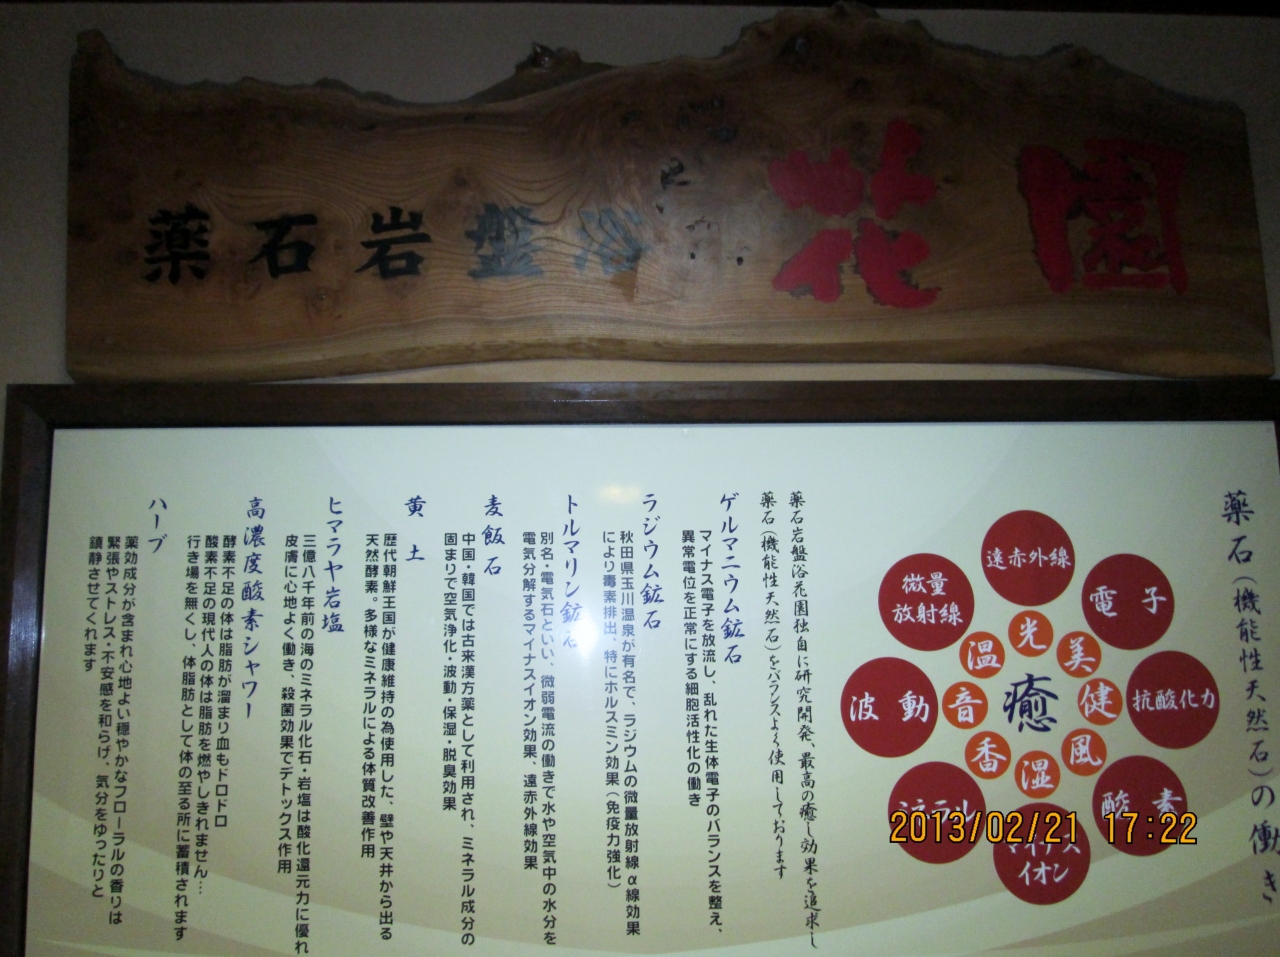 薬石岩盤浴 花園
薬石(機能性天然石)の働き
遠赤外線
電子
抗酸化力
酸素
マイナス
イオン
ミネラル
波動
微量
放射線
光
美
健
風
湿
香
音
温
癒
薬石岩盤浴花園独自に研究開発、最高の癒し効果を追求し
薬石(機能性天然石)をバランスよく使用しております
ゲルマニウム鉱石
マイナス電子を放流し、乱れた生体電子のバランスを整え、
異常電位を正常にする細胞活性化の働き
ラジウム鉱石
秋田県玉川温泉が有名で、ラジウムの微量放射線α線効果
により毒素排出、特にホルスミン効果(免疫力強化)
トルマリン鉱石
別名・電気石といい、微弱電流の働きで水や空気中の水分を
電気分解するマイナスイオン効果、遠赤外線効果
麦飯石
中国・韓国では古来漢方薬として利用され、ミネラル成分の
固まりで空気浄化・波動・保湿・脱臭効果
黄土
歴代朝鮮王国が健康維持の為使用した、壁や天井から出る
天然酵素。多様なミネラルによる体質改善作用
ヒマラヤ岩塩
三億八千年前の海のミネラル化石・岩塩は酸化還元力に優れ
皮膚に心地よく働き、殺菌効果でデトックス作用
高濃度酸素シャワー
酵素不足の体は脂肪が溜まり血もドロドロ
酸素不足の現代人の体は脂肪を燃やしきれません…
行き場を無くし、体脂肪として体の至る所に蓄積されます
ハーブ
薬効成分が含まれ心地よい穏やかなフローラルの香りは
緊張やストレス・不安感を和らげ、気分をゆったりと
鎮静させてくれます
2013/02/21 17:22